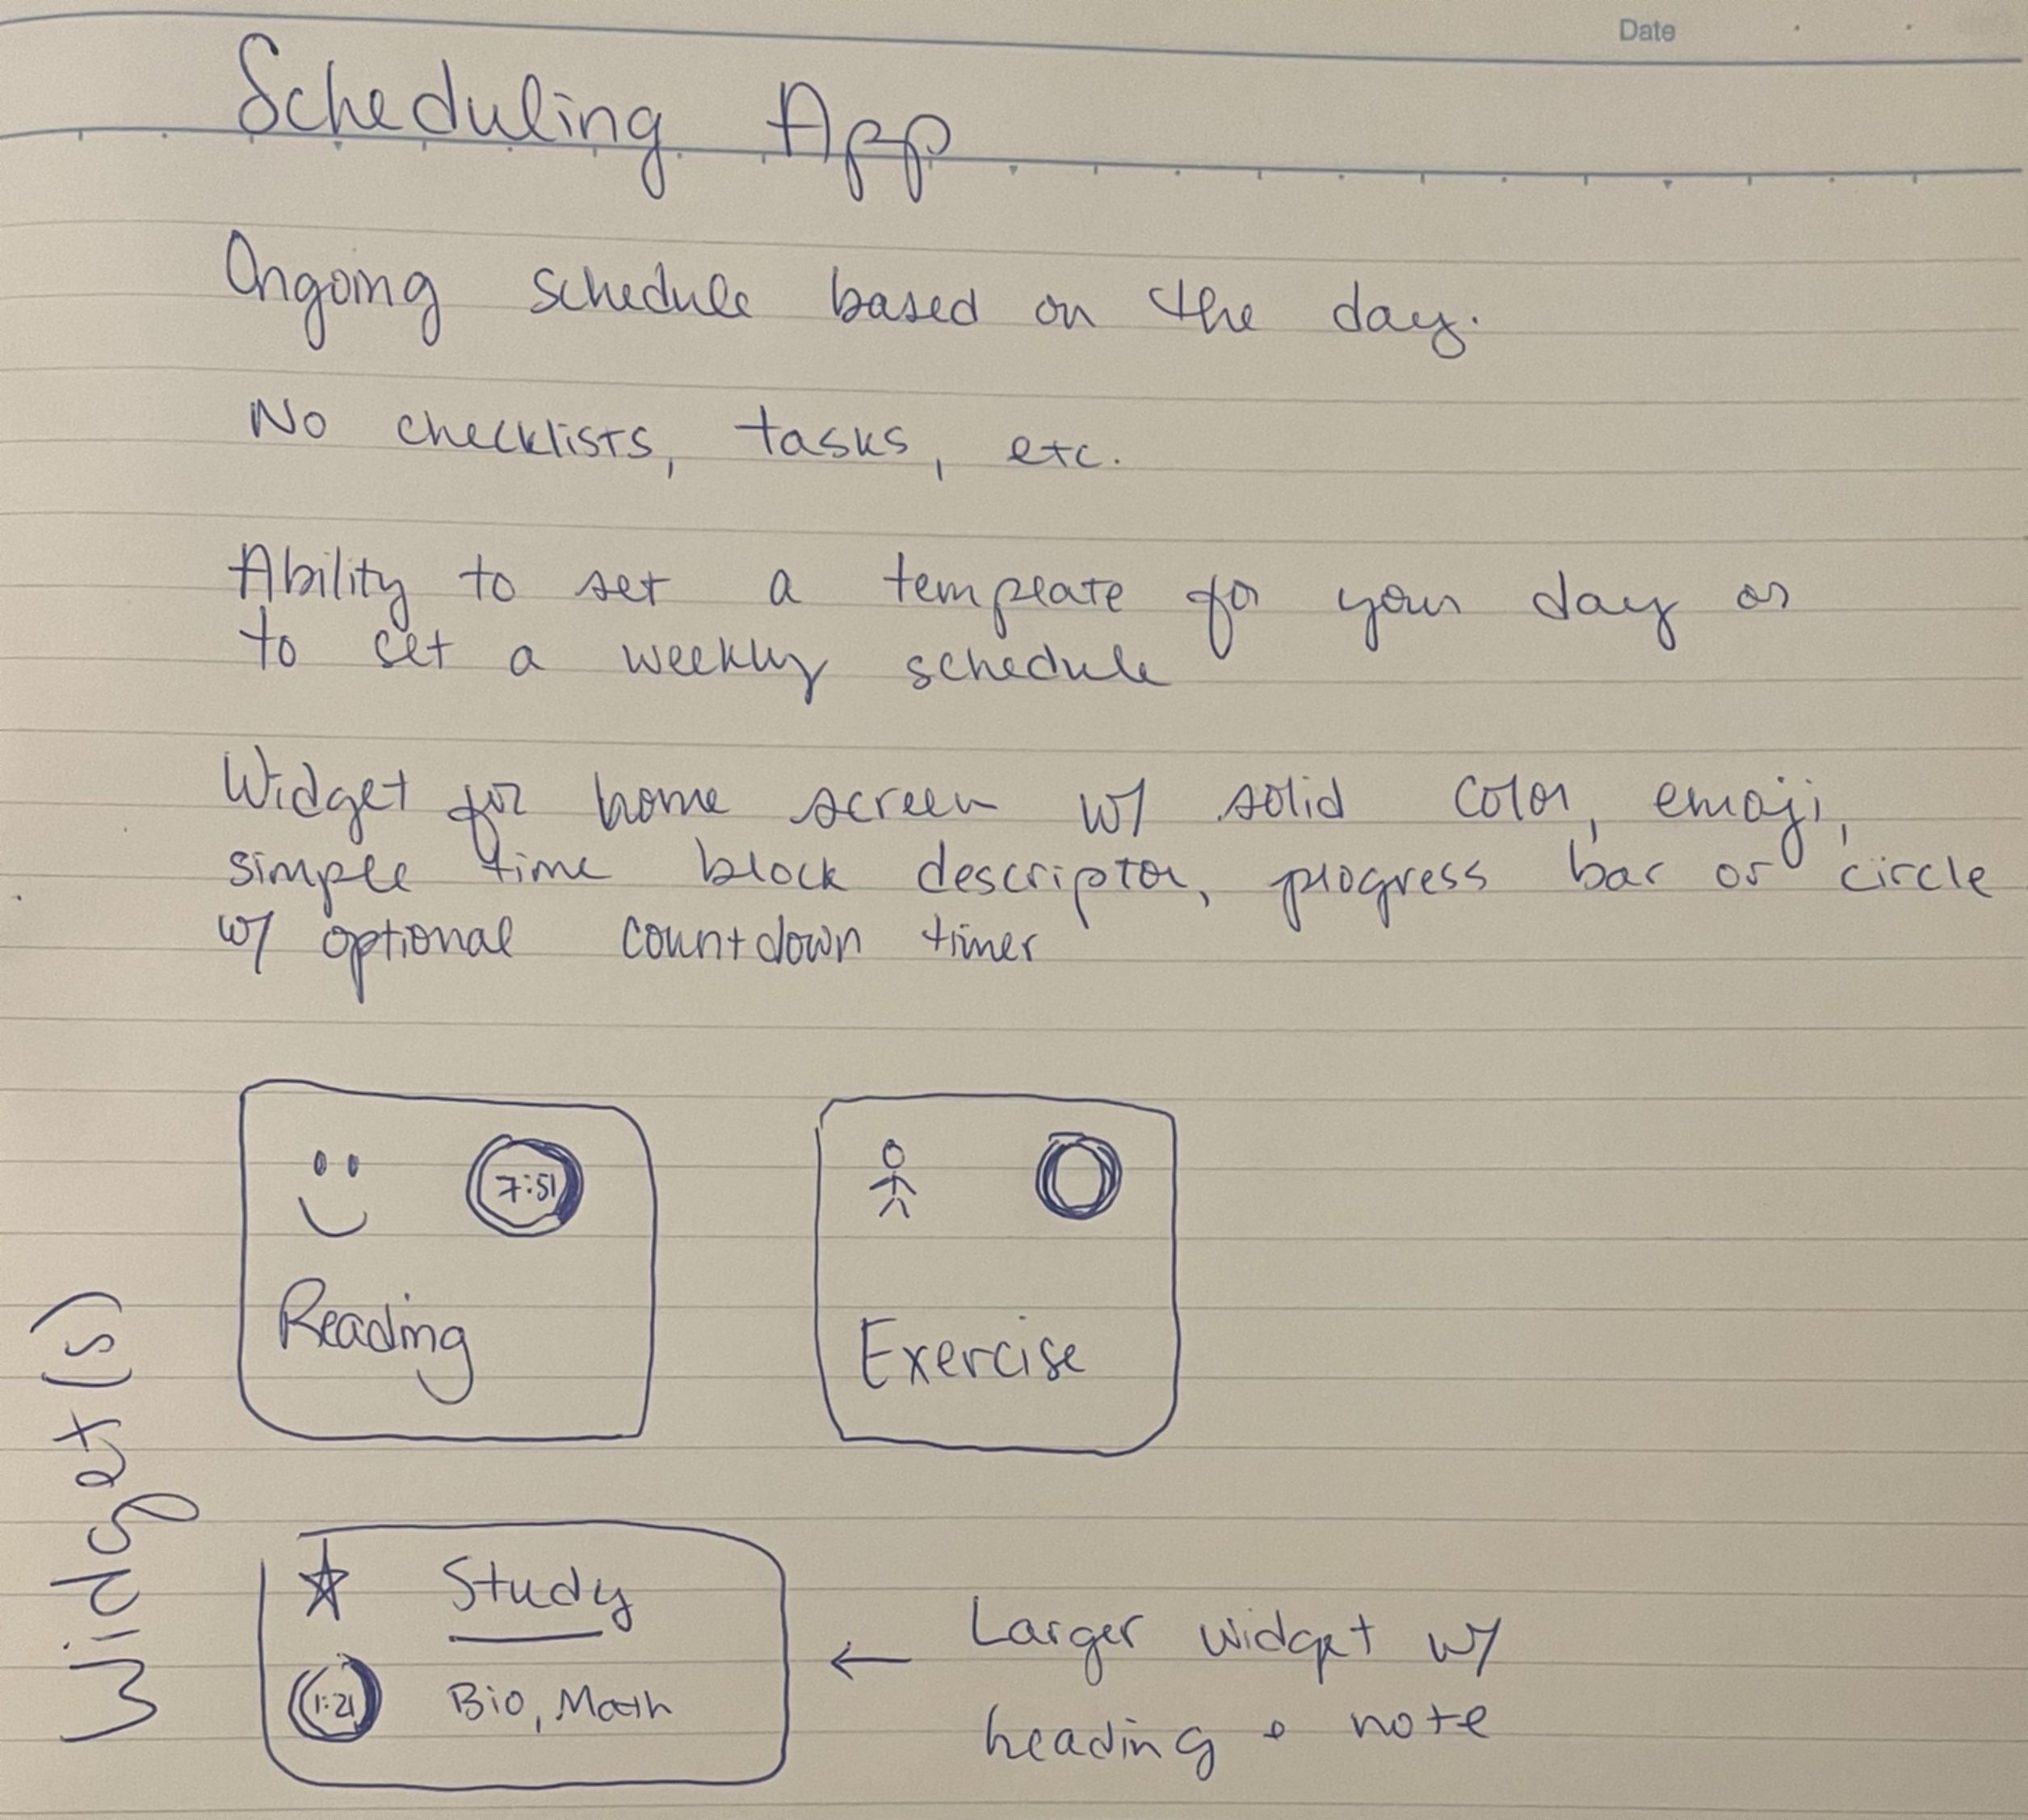 Date
Scheduling App
Ongoing schedule based on the day.
No checklists, tasks, etc.
Ability to set a template for your day or
to set a weekly schedule
Widget for home screen w/ solid color, emoji,
simple time block descriptor, progress bar or circle
w/ optional countdown timer
Widget(s)
7:51
Reading
Exercise
Study
1:21 Bio, Math
← Larger widget w/
heading + note